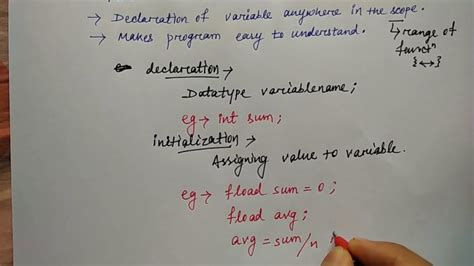 → Declaration of variable anywhere in the scope.
→ Makes program easy to understand.
↳ range of
functⁿ
{↔}
declaration →
Datatype variablename;
eg → int sum;
initialization →
Assigning value to variable.
eg → fload sum = 0;
fload avg;
avg = sum/n